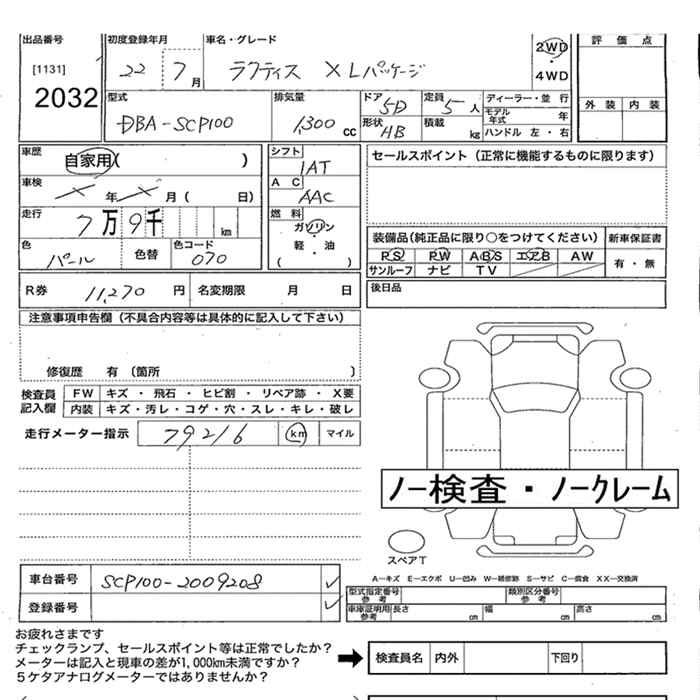 出品番号 初度登録年月 車名・グレード 評価点
[1131] 22 7月 ラクティス XLパッケージ 2WD ・ 4WD
2032 外装 内装
型式 排気量 ドア 5D 定員 5人 ディーラー・並行
DBA-SCP100 1,300cc 形状 HB 積載 kg モデル年式 年
ハンドル 左・右
車歴 自家用( ) シフト 1AT セールスポイント（正常に機能するものに限ります）
車検 ✕年✕月( 日) AC AAC
走行 7万9千 km 燃料 ガソリン・軽・油 ( )
装備品（純正品に限り○をつけてください） 新車保証書
色 パール 色替 色コード 070 PS PW ABS エアB AW 有・無
サンルーフ ナビ TV
R券 11,270円 名変期限 月 日 後日品
注意事項申告欄（不具合内容等は具体的に記入して下さい）
修復歴 有（箇所 ）
検査員記入欄 FW キズ・飛石・ヒビ割・リペア跡・X要
内装 キズ・汚レ・コゲ・穴・スレ・キレ・破レ
走行メーター指示 79216 km マイル
ノー検査・ノークレーム
スペアT
A－キズ E－エクボ U－凹み W－補修跡 S－サビ C－腐食 XX－交換済
車台番号 SCP100-2009208 ✓
登録番号 ✓
型式指定番号 参考 類別区分番号 参考
車庫証明用 参考 長さ cm 幅 cm 高さ cm
お疲れさまです
チェックランプ、セールスポイント等は正常でしたか？
メーターは記入と現車の差が1,000km未満ですか？
5ケタアナログメーターではありませんか？
➡ 検査員名 内外 下回り